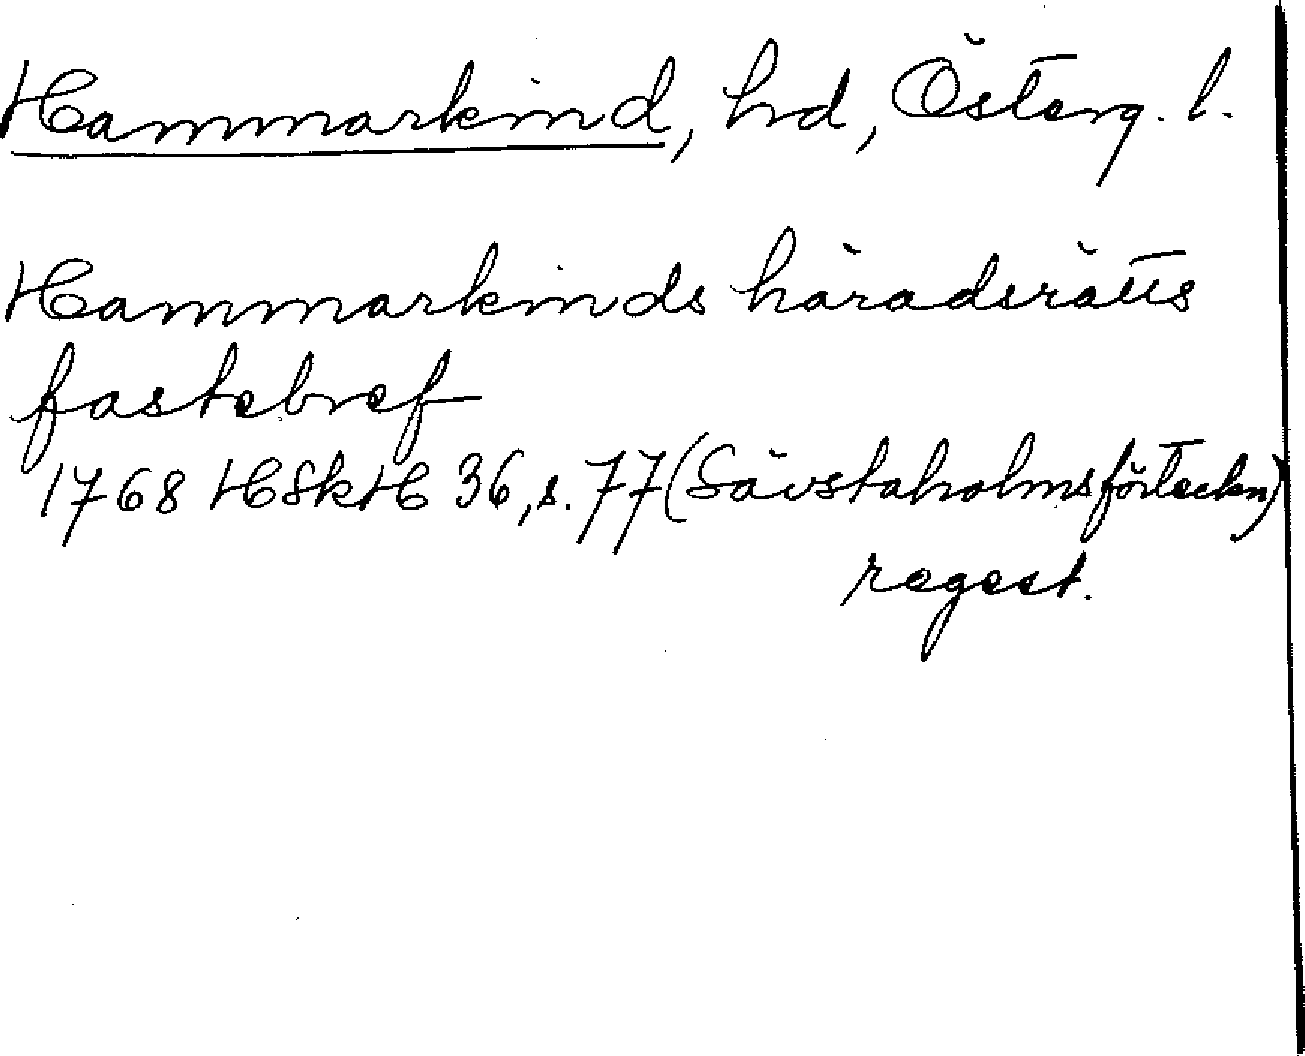 Hammarkind, hd, Österg. l.
Hammarkinds häradsrätts
fastebref
1768 HSkH 36, s. 77 (Sävstaholmsförteckn)
regest.